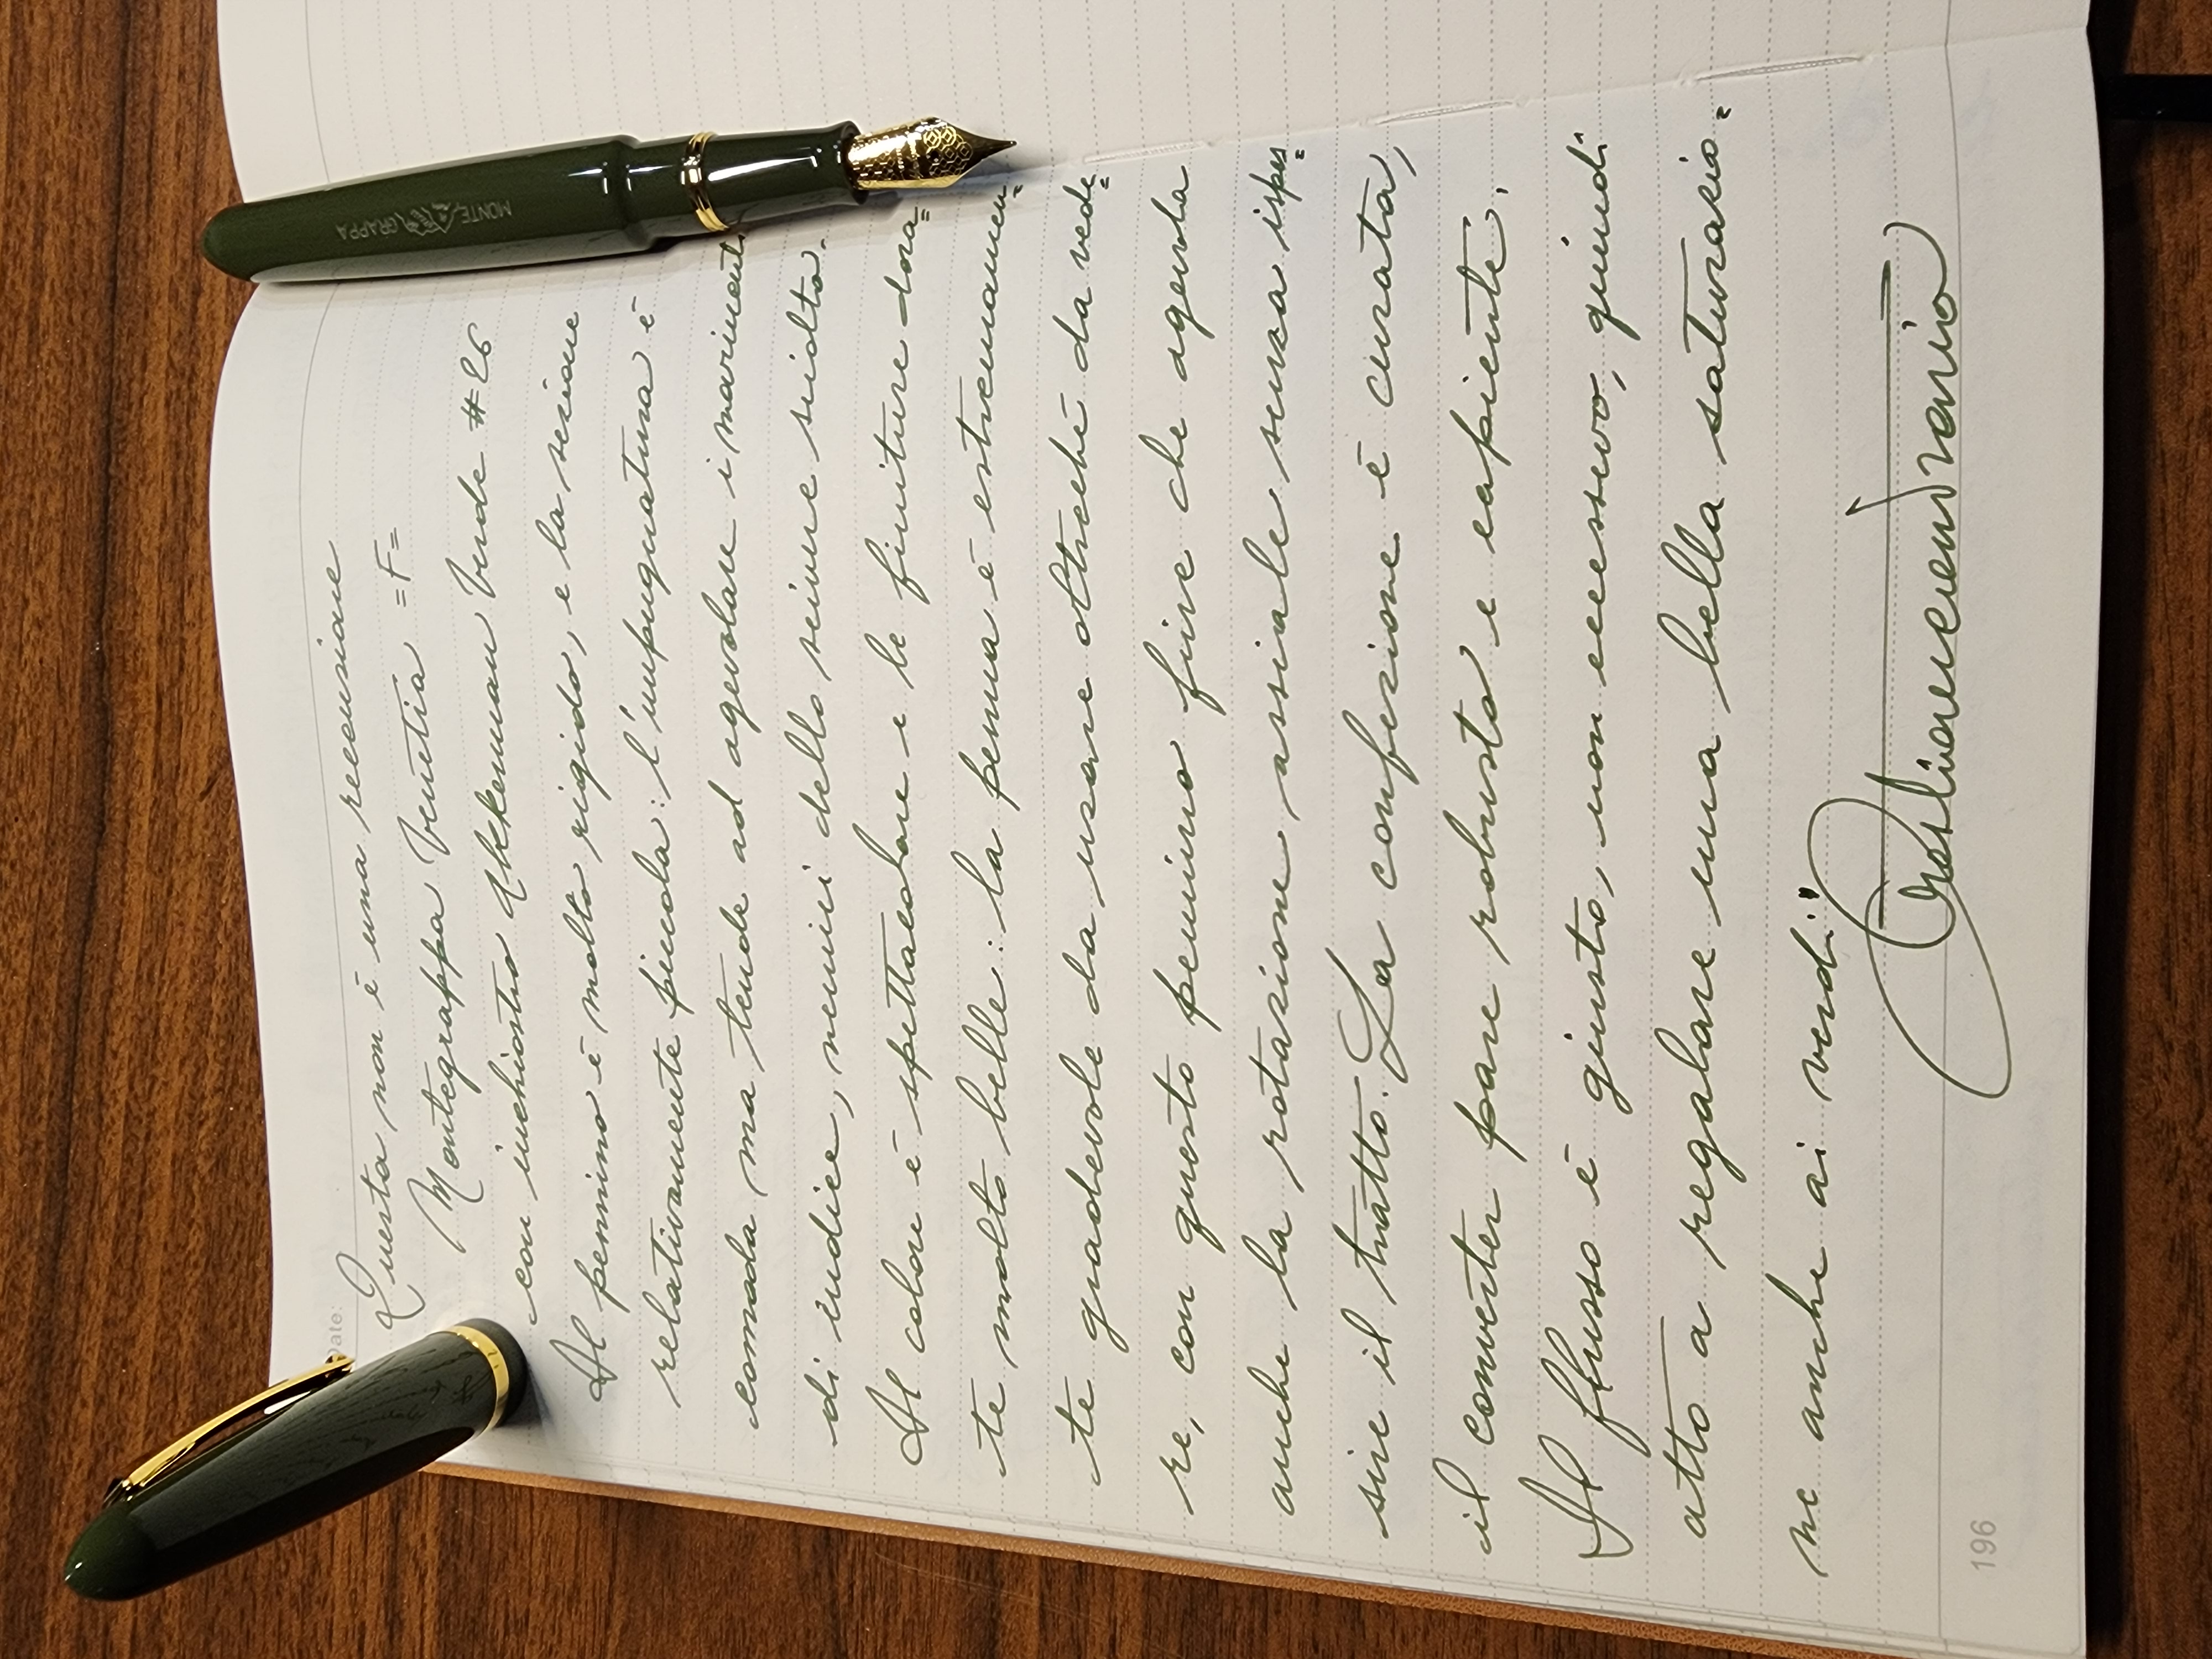 Date:
Questa non è una recensione
Montegrappa Venetia =F=
con inchiostro Akkerman Verde #26
Il pennino è molto rigido, e la sezione
relativamente piccola: l'impugnatura è
comoda ma tende ad agevolare i movimenti
di indice, nemici dello scrivere sciolto.
Il colore è spettacolare e le finiture dora=
te molto belle: la penna è estremamen=
te gradevole da usare oltreché da vede=
re, con questo pennino fine che agevola
anche la rotazione assiale senza ispes=
sire il tratto. La confezione è curata,
il converter pare robusto e capiente.
Il flusso è giusto, non eccessivo, quindi
atto a regalare una bella saturazio=
ne anche ai verdi"
196
MONTE
GRAPPA